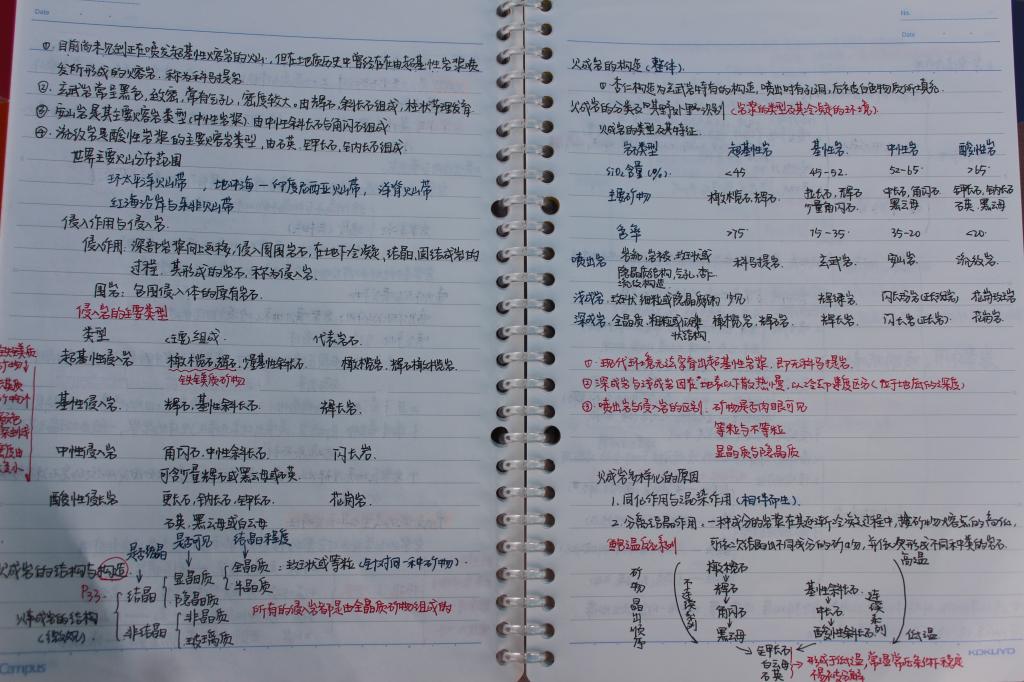 Date
①. 目前尚未见到正在喷发超基性火熔岩的火山, 但在地质历史中曾经存在由超基性岩浆喷
发所形成的火熔岩. 称为科马提岩.
②. 玄武岩常呈黑色, 致密, 常有气孔, 密度较大. 由辉石, 斜长石组成, 柱状节理发育.
③ 安山岩是其主要火熔岩类型(中性岩浆). 由中性斜长石与角闪石组成.
④. 流纹岩是酸性岩浆的主要火熔岩类型, 由石英. 钾长石, 钠长石组成.
世界主要火山分布范围
环太平洋火山带 , 地中海—印度尼西亚火山带, 洋脊火山带
红海沿岸与东非火山带
侵入作用与侵入岩.
侵入作用: 深部岩浆向上运移, 侵入围围岩石, 在地下冷凝、结晶、固结成岩的
过程. 其形成的岩石, 称为侵入岩.
围岩: 包围侵入体的原有岩石.
侵入岩的主要类型
类型 主要组成. 代表岩石.
超基性侵入岩 橄榄石.辉石, 基性斜长石. 橄榄岩. 辉石橄榄岩.
铁镁质矿物
基性侵入岩. 辉石, 基性斜长石. 辉长岩.
中性侵入岩 角闪石. 中性斜长石. 闪长岩.
可含少量辉石或黑云母或石英.
酸性侵入岩 更长石, 钠长石, 钾长石. 花岗岩.
石英. 黑云母或白云母
是否结晶 是否可见 结晶程度
火成岩的结构与构造
P33.
火成岩的结构
结晶 显晶质 全晶质: 斑状或等粒(针对同一种矿物).
半晶质
隐晶质
非结晶 非晶质
玻璃质
所有的侵入岩都是由全晶质矿物组成的
Campus
No.
Date
火成岩的构造. (整体).
① 杏仁构造为玄武岩特有的构造, 喷出时有孔洞, 后来被白色物质所填充.
火成岩的分类及其野外鉴别 (岩浆的类型及其冷凝的环境).
火成岩的类型及其特征.
岩石类型 超基性岩 基性岩. 中性岩 酸性岩
SiO₂含量(%). <45 45-52. 52-65. >65.
主要矿物 橄榄石. 辉石. 拉长石, 辉石 中长石, 角闪石. 钾长石, 钠长石
少量角闪石. 黑云母 石英. 黑云母
色率 >75 75-35. 35-20 <20.
喷出岩 科马提岩. 玄武岩. 安山岩. 流纹岩.
隐晶质结构, 气孔. 杏仁.
流纹构造
浅成岩 斑状 细粒或隐晶质结构 少见 辉绿岩 闪长玢岩(正长斑岩) 花岗斑岩
深成岩. 全晶质. 粗粒或似斑 橄榄岩. 辉石岩. 辉长岩. 闪长岩(正长岩) 花岗岩
状结构
①. 现代环境无法寄出超基性岩浆, 即无科马提岩.
② 深成岩与浅成岩因在地表以下散热慢, 以冷却速度区分(位于地底下的深度)
③. 喷出岩与侵入岩的区别. 矿物是否肉眼可见
等粒与不等粒
显晶质与隐晶质
火成岩多样化的原因
1. 同化作用与混染作用 (相伴而生).
2. 分离结晶作用. 一种成分的岩浆在其逐渐冷凝过程中, 按矿物熔点的高低,
可依次结晶出不同成分的矿物, 并依次形成不同种类的岩石.
鲍温反应系列
高温
矿物晶出顺序
不连续系列
橄榄石
辉石 基性斜长石
角闪石 中长石
黑云母 酸性斜长石
连续系列
低温
钾长石
白云母
石英
形成于低温, 常温常压条件下稳定
不易被分解
KOKUYO